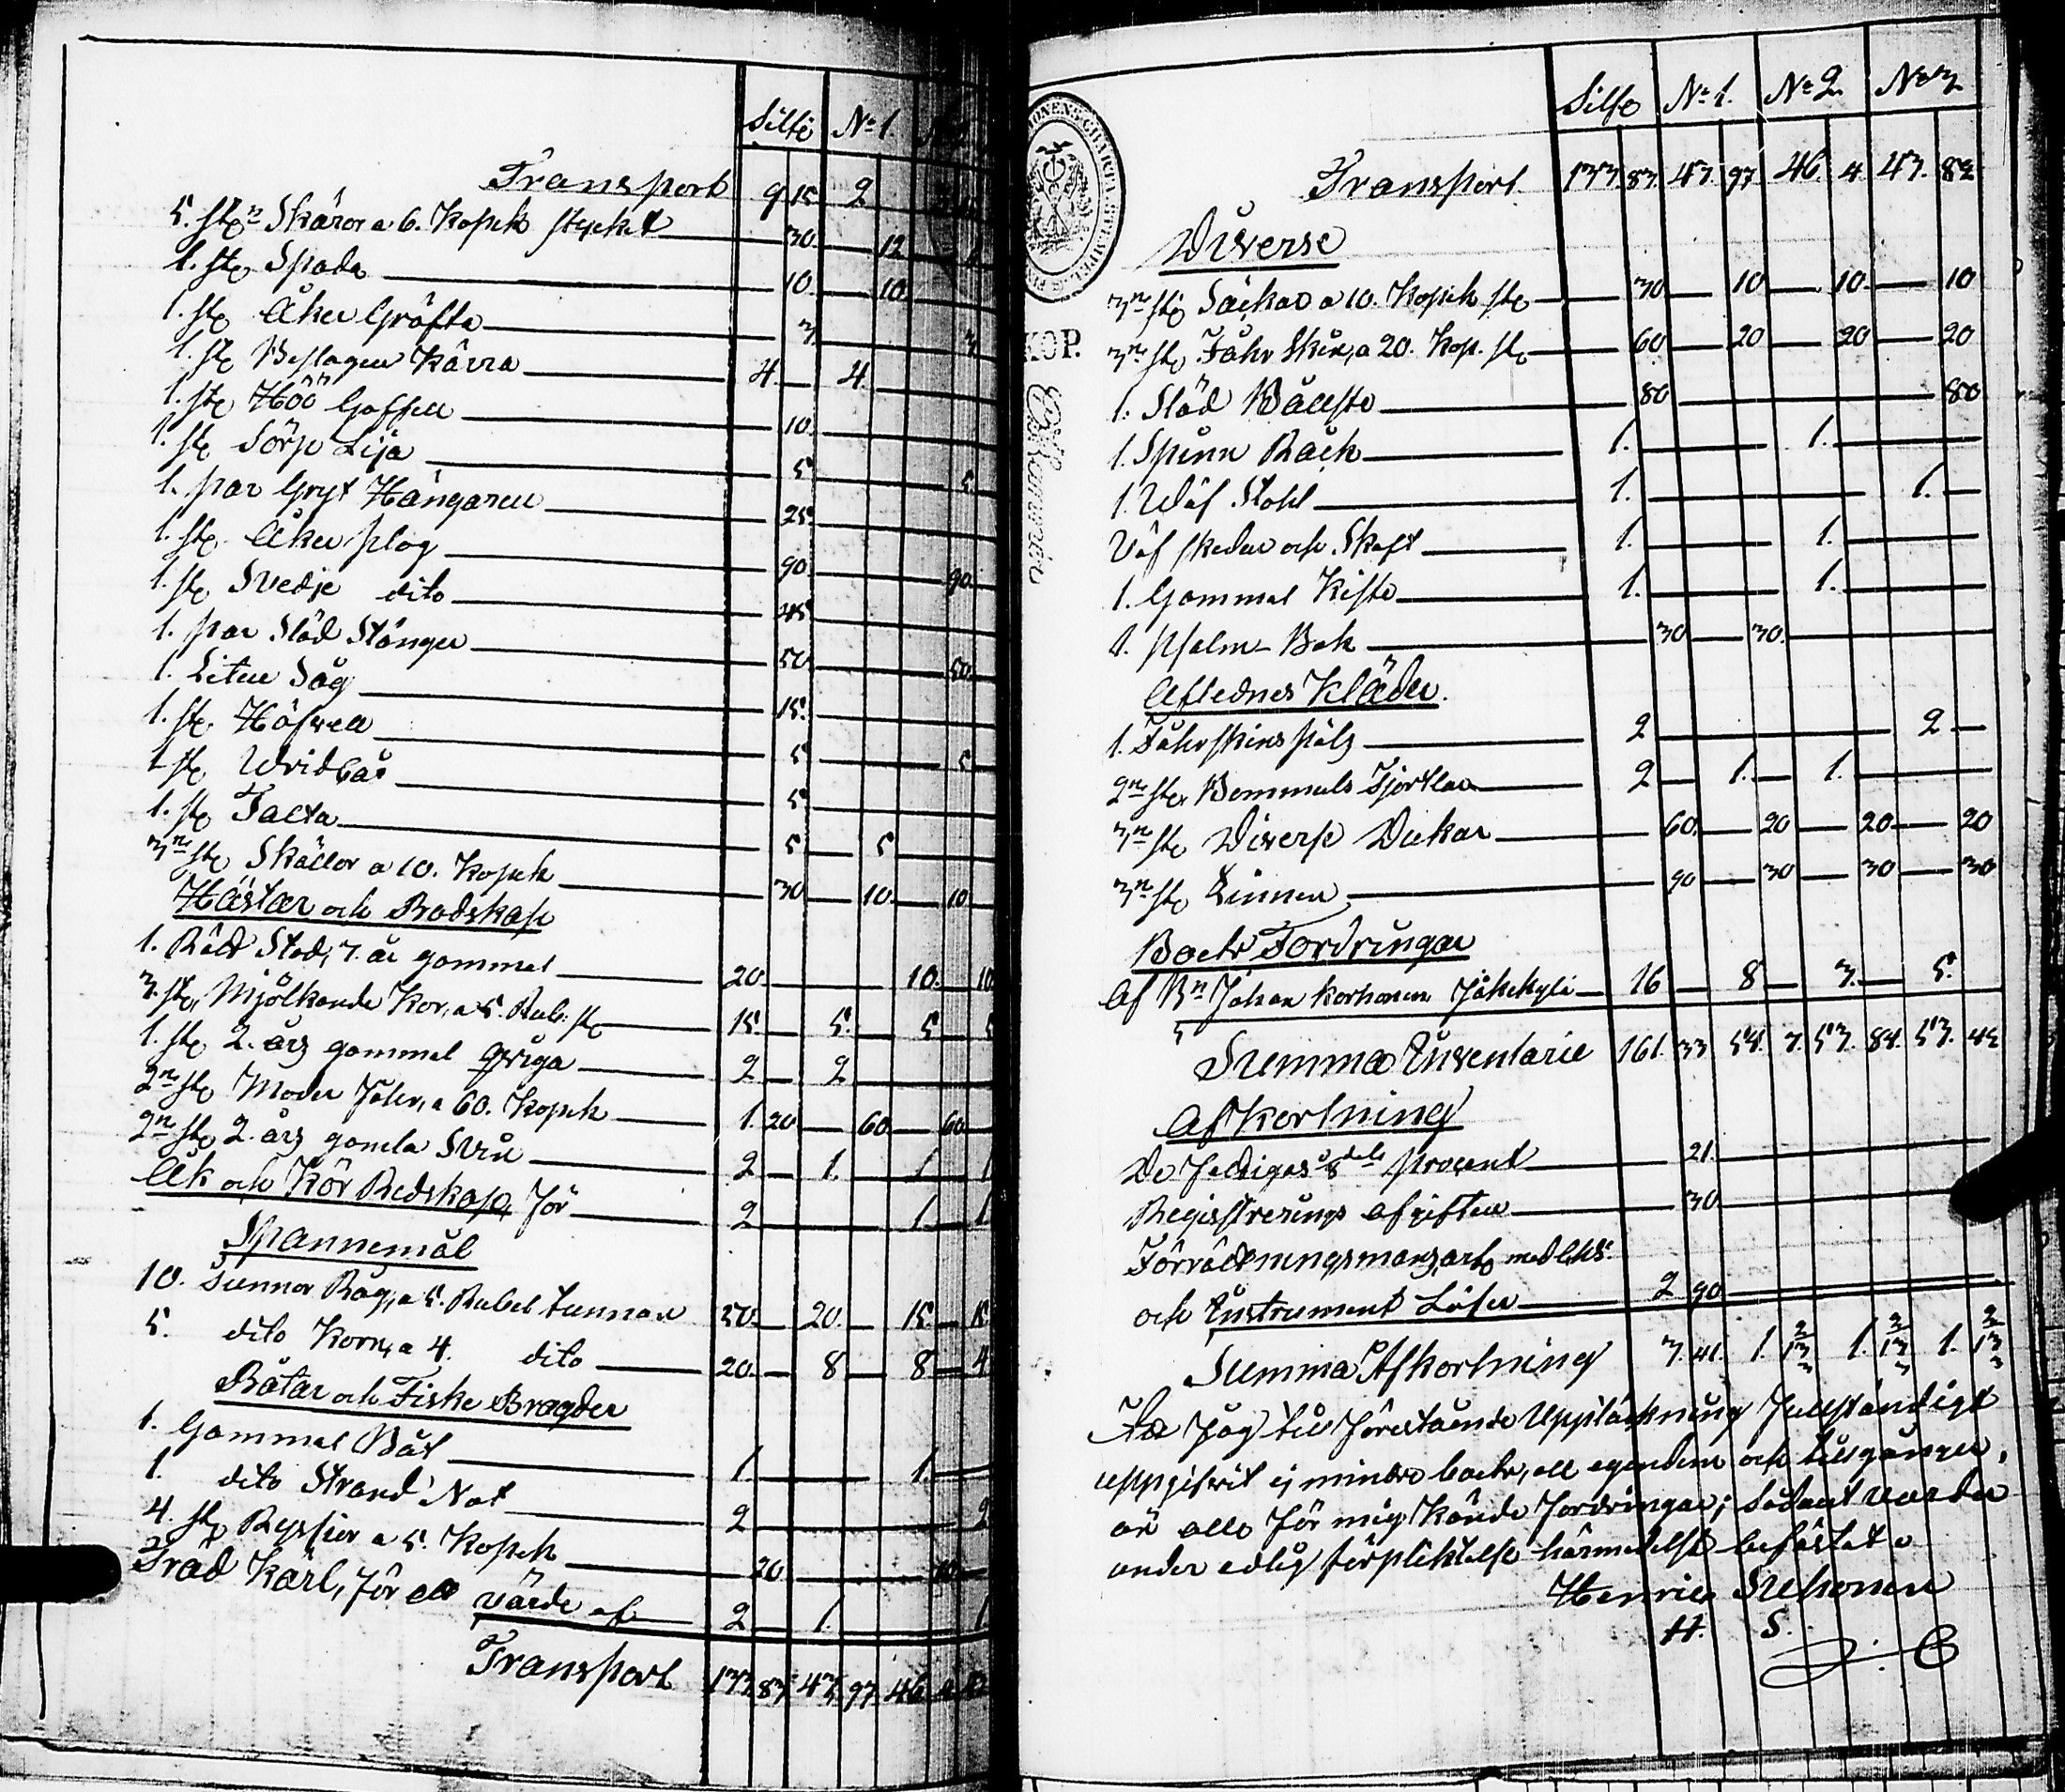 Silfe No 1.
Transport 9 15 2
5. stn Skäror a 6. Kopek stycket 30. 12
1. st Spada 10. 10
1. st Åker Gräfta 3. 3
1. st Beslagen Kärra 4. 4.
1. st Höö Gaffell 10.
1. st Sörp Lija 5 5
1. par Gryt Hängaren 25
1. st Åker plog 90 90
1. st Svedje dito 45
1. par Släd Stänger 50 50
1. Liten Såg 15.
1. st Höfvell 5 5
1 st Wridbår 5
1. st Talta 5 5
3n st Skällor a 10. Kopek 30 10. 10
Hästar och Bodskap
1. Räld Stod, 7. år gammal 20. 10. 10
3. st Mjölkande Kor, a 5. Rub: st 15. 5. 5 5
1. st 2. års gammal Qviga 2 2
2n st Moder Fåhr, a 60. Kopek 1. 20 60 60
2n st 2. års gamla Svin 2 1. 1 1
Åk och Kör Redskap, för 2 1 1
Spannemål
10. Tunnor Råg, a 5. Rubel tunnan 50. 20. 15. 15
5. dito Korn, a 4. dito 20. 8 8 4
Båtar och Fiske Bragder
1. Gammal Båt 1. 1.
1. dito Strand Not 2 2
4. st Ryssior a 5. Kopek 20 20
Träd Kärl, för ett värde af 2 1. 1
Transport 133 83 43. 97. 46
Silfe No 1. No 2. No 3
Transport 133 83. 43. 97 46. 4. 43. 82
Diverse
3n st Säckar a 10. Kopek st 30 10 10 10
KOP.
3n st Fåhr Skin, a 20. Kop. st 60 20 20 20
1. Släd 80 80
1. Spinn Råck 1. 1.
1. Wäf Stohl 1. 1.
Väf skedar och Skaft 1. 1.
1. Gammal Kista 1. 1.
1. Psalm-Bok 30 30.
Aflednes Kläder.
1. Fåhrskins päls 2 2
2n st Bommuls Tjortlar 2 1. 1.
3n st Diverse Dukar 60. 20 20 20
3n st Linnen 90 30 30 30
Boets Fordringar
Af Bn Johan Korhonen Jokikylä 16 8 3. 5.
Summa Inventarie 161. 33 54. 7. 53. 84. 53. 42
Afkortning
De Fattigas 8dels procent 21.
Registrerings afgiften 30.
Förrättningsmans
och Instrument Lösen 2 90
Summa Afkortning 3. 41. 1. 13 2/3 1. 13 2/3 1. 13 2/3
Att jag till förestående Uppteckning fullständigt
uppgifvit ej mindre boets, all egendom och tillgångar,
än alla för mig kände fordringar; sådant varder
under edlig förpliktelse härmedelst befästat
Henric
H. S.